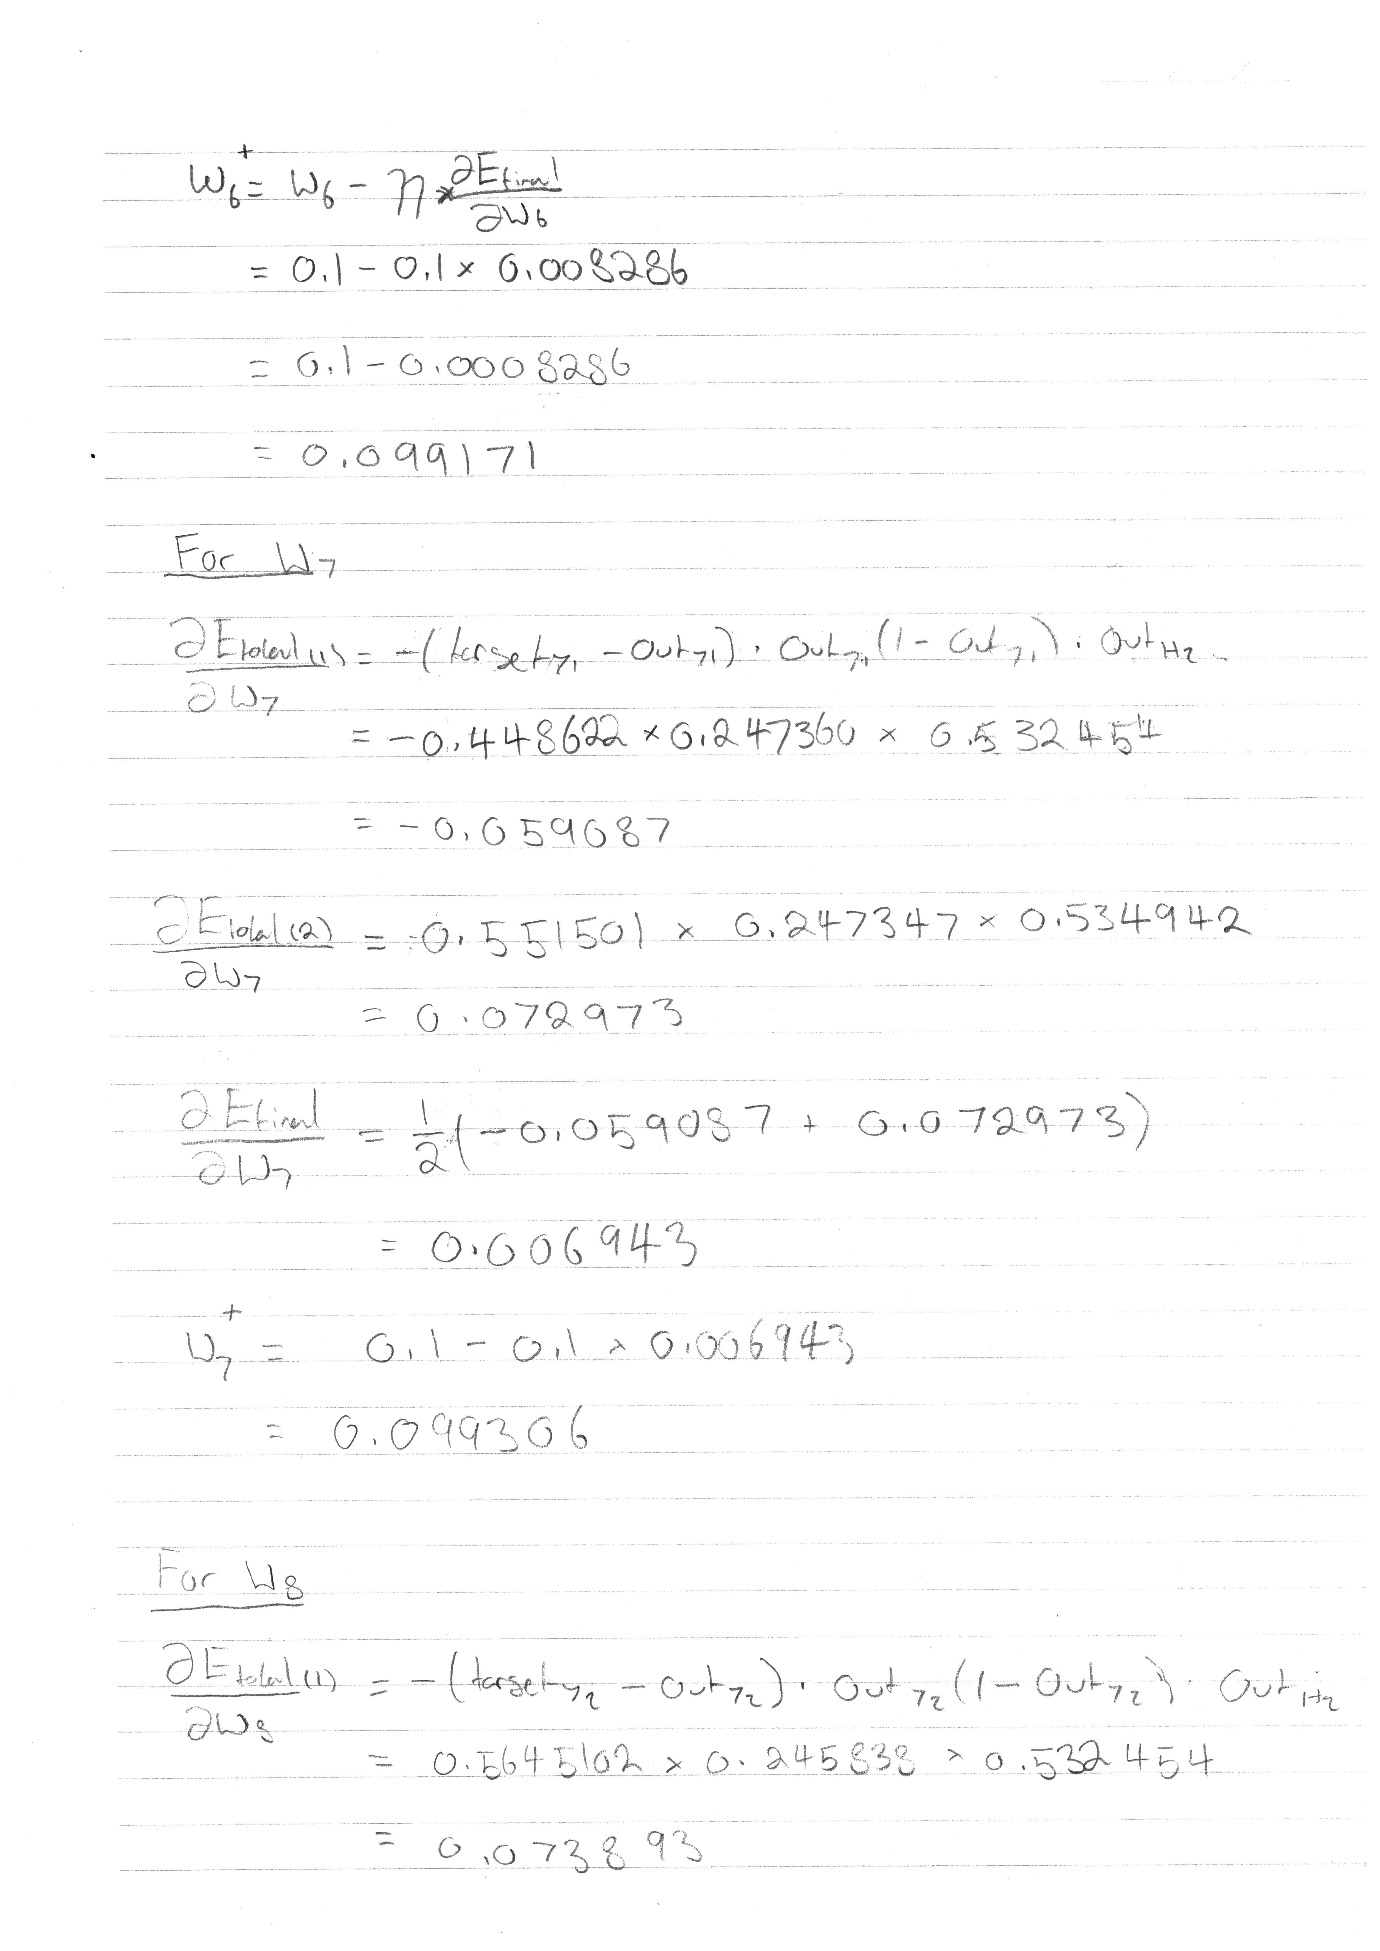 W₆⁺ = W₆ - η * ∂Efinal/∂W₆
= 0.1 - 0.1 × 0.008286
= 0.1 - 0.0008286
= 0.099171
For W₇
∂Etotal(1)/∂W₇ = -(target_y₁ - Out_y₁) . Out_y₁(1 - Out_y₁) . Out_H₂
= -0.448622 × 0.247360 × 0.532454
= -0.059087
∂Etotal(2)/∂W₇ = 0.551501 × 0.247347 × 0.534942
= 0.072973
∂Efinal/∂W₇ = 1/2(-0.059087 + 0.072973)
= 0.006943
W₇⁺ = 0.1 - 0.1 × 0.006943
= 0.099306
For W₈
∂Etotal(1)/∂W₈ = -(target_y₂ - Out_y₂) . Out_y₂(1 - Out_y₂) . Out_H₂
= 0.5645102 × 0.245838 × 0.532454
= 0.073893